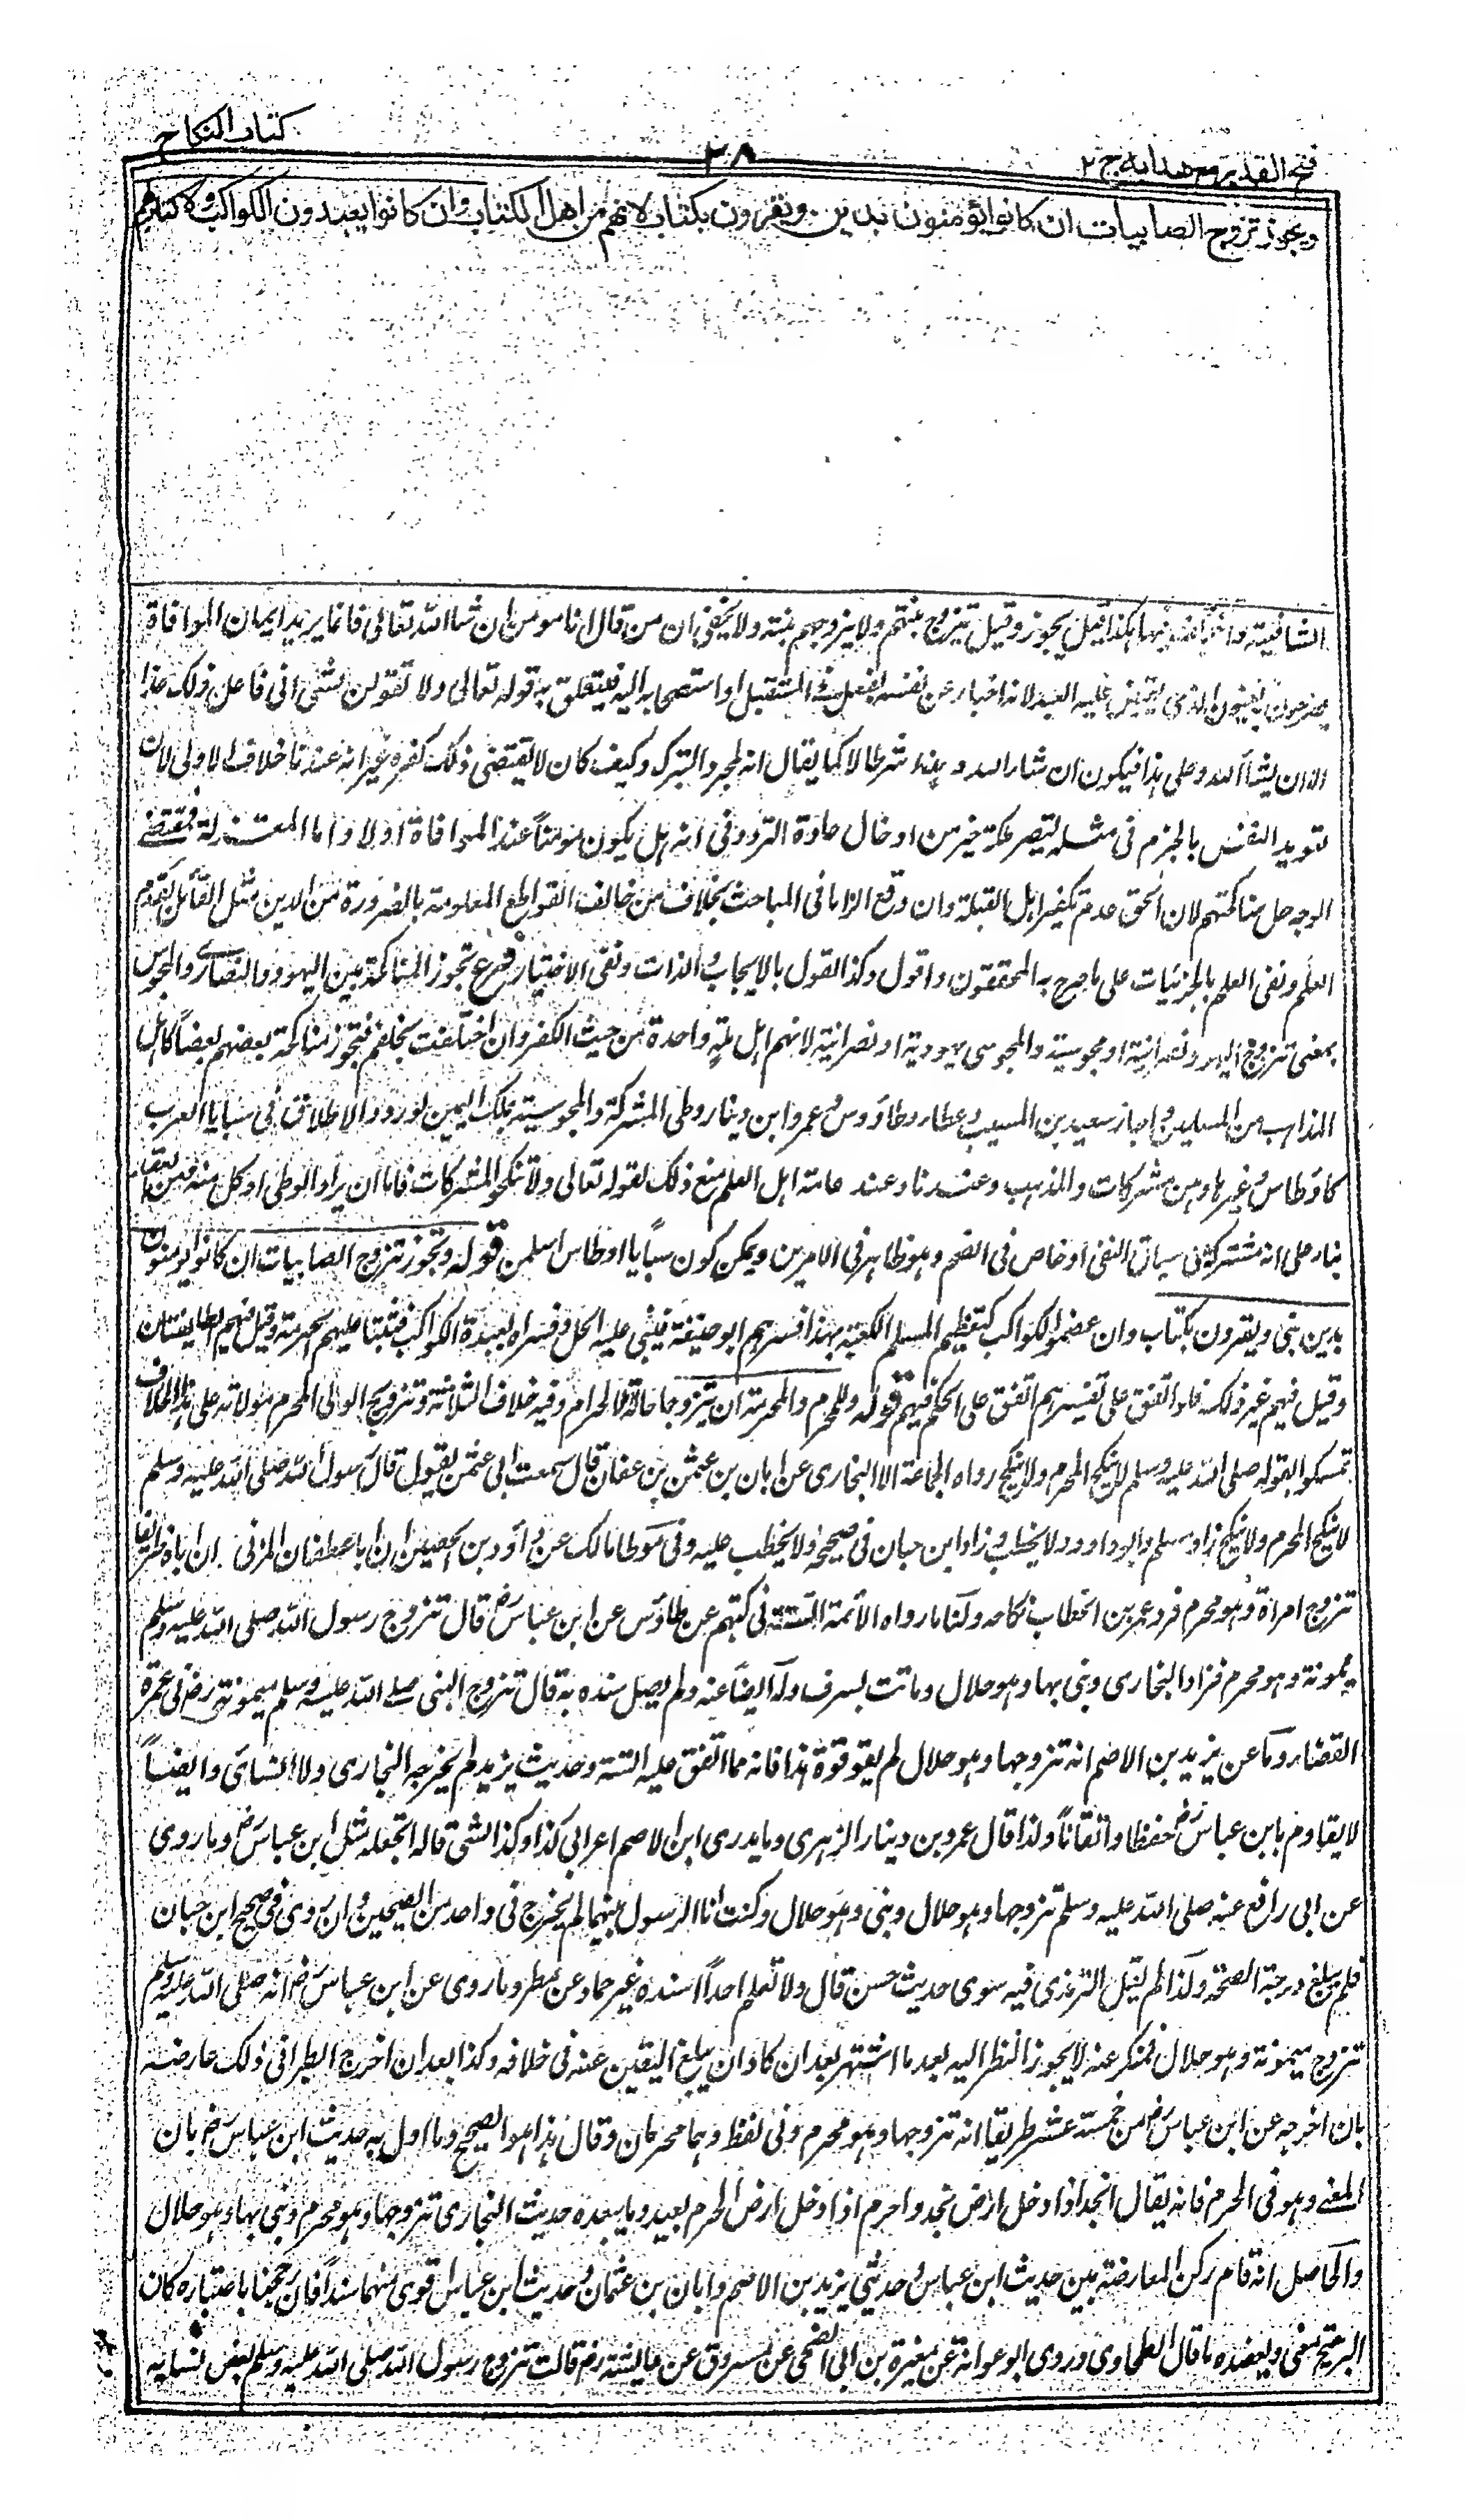 فتح القدير مع هدايه ج ٢
٣٨
كتاب النكاح
ويجوز تزوج الصابيات ان كانوا يؤمنون بدين ويقرون بكتاب لانهم من اهل الكتاب وان كانوا يعبدون الكواكب ولا كتاب لهم
الشافعية واختلف فيها هكذا قيل يجوز وقيل يتزوج بنتهم ولا يزوجهم بنته ولا يخفى ان من قال انا مومن ان شاء الله تعالى فانما يريد ايمان الموافاة
يصرحون يعنون الذى يقبض عليه العبد لانه اخبار عن نفسه بفعل فى المستقبل او استصحابه اليه فيتعلق به قوله تعالى ولا تقولن لشئ انى فاعل ذلك غدا
الا ان يشاء الله وعلى هذا فيكون ان شاء الله شرطا لا كما يقال انه لمجرد التبرك وكيف كان لا يقتضى ذلك كفره غير انه عندنا خلاف الاولى لان
تعويد النفس بالجزم فى مثله ليصير ملكة خير من ادخال عادة التردد فى انه هل يكون مومنا عند الموافاة اولا واما المعتزلة فمقتضى
الوجه حل مناكحتهم لان الحق عدم تكفير اهل القبلة وان وقع الزاما فى المباحث بخلاف من خالف القواطع المعلومة بالضرورة من الدين مثل القائل بقدم
العلم ونفى العلم بالجزئيات على ما صرح به المحققون واقول وكذا القول بالايجاب بالذات ونفى الاختيار فرع تجوز المناكحة بين اليهود والنصارى والمجوس
بمعنى تزوج اليهود نصرانية او مجوسية والمجوسى يهودية او نصرانية لانهم اهل ملة واحدة من حيث الكفر وان اختلفت نحلهم فتجوز مناكحة بعضهم بعضا كاهل
المذاهب من المسلمين واجاز سعيد بن المسيب وعطاء وطاؤوس وعمرو ابن دينار وطى المشركة والمجوسية بملك اليمين لورود الاطلاق فى سبايا العرب
كاوطاس وغيرها وهن مشركات والمذهب وعندنا وعند عامة اهل العلم منع ذلك لقوله تعالى ولا تنكحوا المشركات فاما ان يراد الوطى او كل منه ومن العقد
بناء على انه مشترك فى سياق النفى او خاص فى الضم وهو ظاهر فى الامرين ويمكن كون سبايا اوطاس اسلمن قوله ويجوز تزوج الصابيات ان كانوا يومنون
بدين نبى ويقرون بكتاب وان عضموا الكواكب كتعظيم المسلم الكعبة بهذا فسرهم ابو حنيفة فيبنى عليه الحل وفسراه بعبدة الكواكب فبنيا عليهم الحرمة وقيل فيهم الطايفتان
وقيل فيهم غير ذلك فلو اتفق على تفسيرهم اتفق على الحكم فيهم قوله وللمحرم والمحرمة ان يتزوجا حالة الاحرام وفيه خلاف الثلاثة وتزويج الولى المحرم مولاته على هذا الخلاف
تمسكوا بقوله صلى الله عليه وسلم لا ينكح المحرم ولا ينكح رواه الجماعة الا البخارى عن ابان بن عثمن بن عفان قال سمعت ابى عثمن يقول قال رسول الله صلى الله عليه وسلم
لا ينكح المحرم ولا ينكح زاد مسلم وابو داوود ولا يخطب وزاد ابن حبان فى صحيحه ولا يخطب عليه وفى موطا مالك عن داود بن الحصين ان ابا غطفان المزنى ان اباه طريفا
تزوج امراة وهو محرم فرد عمر بن الخطاب نكاحه ولنا ما رواه الائمة الستة فى كتبهم عن طاؤس عن ابن عباس رض قال تزوج رسول الله صلى الله عليه وسلم
ميمونة وهو محرم فزاد البخارى وبنى بها وهو حلال وماتت بسرف وله ايضا عنه ولم يصل سنده به قال تزوج النبى صلى الله عليه وسلم ميمونة رض فى عمرة
القضاء وما عن يزيد بن الاصم انه تزوجها وهو حلال لم يقو قوة هذا فانه مما اتفق عليه الستة وحديث يزيد لم يخرجه البخارى ولا النسائى وايضا
لا يقاوم بابن عباس رض حفظا واتقانا ولذا قال عمرو بن دينار الزهرى وما يدرى ابن الاصم اعرابى كذا وكذا لشئ قاله اتجعله مثل ابن عباس رض وما روى
عن ابى رافع عنه صلى الله عليه وسلم تزوجها وهو حلال وبنى وهو حلال وكنت انا الرسول بينهما لم يخرج فى واحد من الصحيحين وان روى فى صحيح ابن حبان
فلم يبلغ درجة الصحة ولذا لم يقل الترمذى فيه سوى حديث حسن قال ولا نعلم احدا اسنده غير حماد عن مطر وما روى عن ابن عباس رض انه صلى الله عليه وسلم
تزوج ميمونة وهو حلال فمنكر عنه لا يجوز النظر اليه بعد ما اشتهر بعد ان كاد ان يبلغ اليقين عنه فى خلافه وكذا بعد ان اخرج الطبرانى ذلك عارضه
بان اخرجه عن ابن عباس رض من خمسة عشر طريقا انه تزوجها وهو محرم وفى لفظ وهما محرمان وقال هذا هو الصحيح وما اول به حديث ابن عباس رض بان
المعنى وهو فى الحرم فانه يقال انجد اذا دخل ارض نجد واحرم اذا دخل ارض الحرم بعيد وما يبعده حديث البخارى تزوجها وهو محرم وبنى بها وهو حلال
والحاصل انه قام ركن المعارضة بين حديث ابن عباس وحديثى يزيد بن الاصم وابان بن عثمان وحديث ابن عباس اقوى منهما سندا فان رجحنا باعتباره كان
الترجيح معنى ويعضده ما قال الطحاوى وروى ابو عوانة عن مغيرة بن ابى الضحى عن مسروق عن عايشة رض قالت تزوج رسول الله صلى الله عليه وسلم بعض نسايه